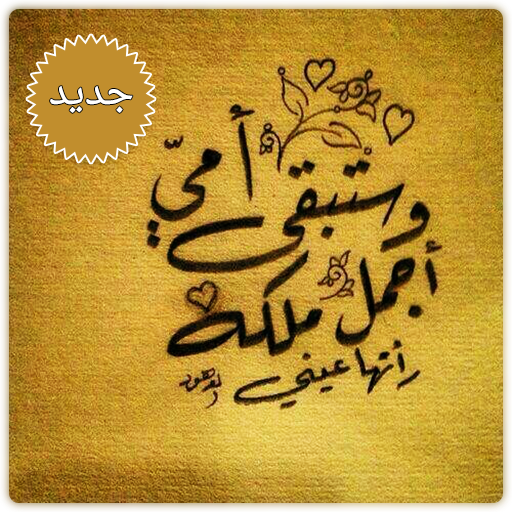 جديد
وستبقى أميّ
أجمل ملكة
رأتها عيني